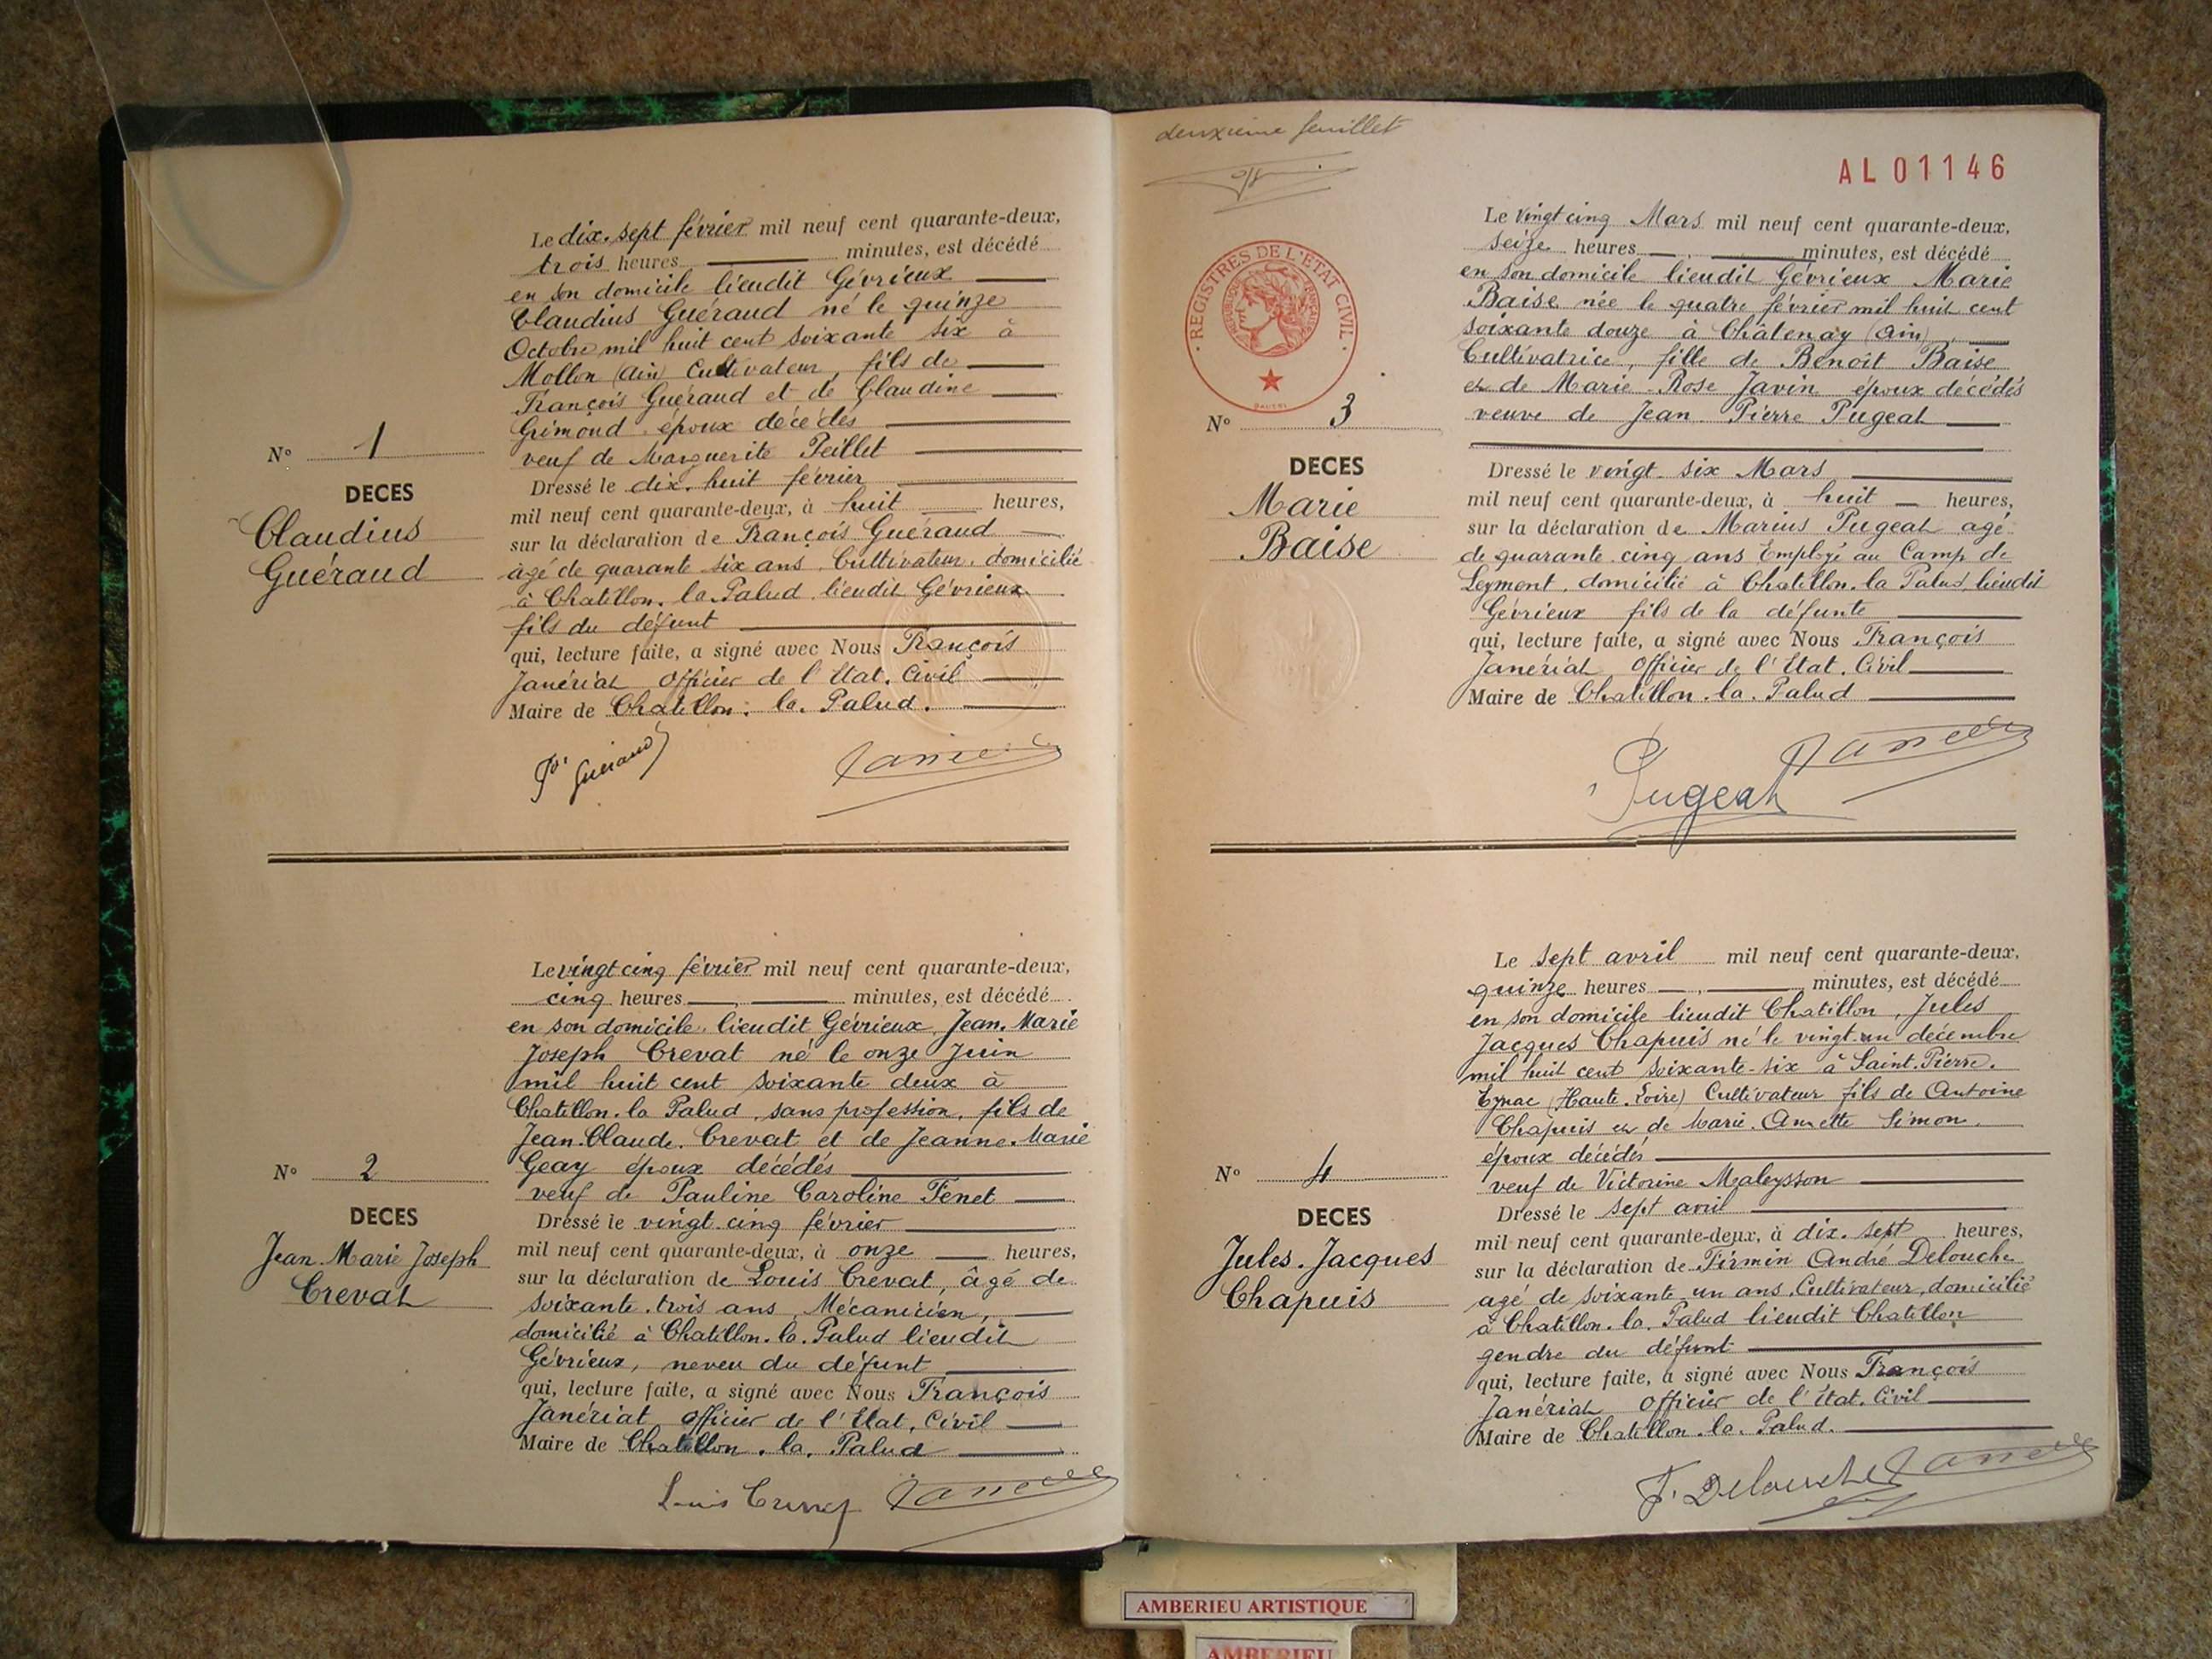 Le dix-sept février mil neuf cent quarante-deux,
trois heures minutes, est décédé
en son domicile lieudit Gévrieux
Claudius Guéraud né le quinze
Octobre mil huit cent soixante six à
Mollon (Ain) Cultivateur, fils de
François Guéraud et de Claudine
Grimond époux décédés
veuf de Marguerite Peillet
N° 1
DECES
Claudius
Guéraud
Dressé le dix-huit février
mil neuf cent quarante-deux, à huit heures,
sur la déclaration de François Guéraud
âgé de quarante six ans, Cultivateur, domicilié
à Chatillon-la-Palud lieudit Gévrieux
fils du défunt
qui, lecture faite, a signé avec Nous François
Janériat Officier de l'Etat-Civil
Maire de Chatillon-la-Palud.
Guéraud
Le vingt cinq février mil neuf cent quarante-deux,
cinq heures minutes, est décédé
en son domicile lieudit Gévrieux, Jean-Marie
Joseph Crevat né le onze Juin
mil huit cent soixante deux à
Chatillon-la-Palud, sans profession, fils de
Jean-Claude Crevat et de Jeanne-Marie
Geay époux décédés
veuf de Pauline Caroline Fenet
N° 2
DECES
Jean-Marie Joseph
Crevat
Dressé le vingt-cinq février
mil neuf cent quarante-deux, à onze heures,
sur la déclaration de Louis Crevat, âgé de
soixante-trois ans, Mécanicien,
domicilié à Chatillon-la-Palud lieudit
Gévrieux, neveu du défunt
qui, lecture faite, a signé avec Nous François
Janériat Officier de l'Etat-Civil
Maire de Chatillon-la-Palud
Louis Crevat
deuxième feuillet
AL 01146
REGISTRES DE L'ETAT CIVIL
Le vingt cinq Mars mil neuf cent quarante-deux,
seize heures minutes, est décédé
en son domicile lieudit Gévrieux Marie
Baise née le quatre février mil huit cent
soixante douze à Châtenay (Ain)
Cultivatrice, fille de Benoît Baise
et de Marie-Rose Javin époux décédés
veuve de Jean Pierre Pugeat
N° 3
DECES
Marie
Baise
Dressé le vingt-six Mars
mil neuf cent quarante-deux, à huit heures,
sur la déclaration de Marius Pugeat agé
de quarante-cinq ans Employé au Camp de
Leyment, domicilié à Chatillon-la-Palud, lieudit
Gévrieux fils de la défunte
qui, lecture faite, a signé avec Nous François
Janériat Officier de l'Etat-Civil
Maire de Chatillon-la-Palud
Pugeat
Le sept avril mil neuf cent quarante-deux,
quinze heures minutes, est décédé
en son domicile lieudit Chatillon, Jules
Jacques Chapuis né le vingt-un décembre
mil huit cent soixante-six à Saint-Pierre-
Eynac (Haute-Loire) Cultivateur fils de Antoine
Chapuis et de Marie-Annette Simon,
époux décédés
veuf de Victorine Maleysson
N° 4
DECES
Jules-Jacques
Chapuis
Dressé le sept avril
mil neuf cent quarante-deux, à dix-sept heures,
sur la déclaration de Firmin André Delouche
agé de soixante un ans, Cultivateur, domicilié
à Chatillon-la-Palud lieudit Chatillon
gendre du défunt
qui, lecture faite, a signé avec Nous François
Janériat Officier de l'Etat-Civil
Maire de Chatillon-la-Palud.
F. Delouche
AMBERIEU ARTISTIQUE
AMBERIEU